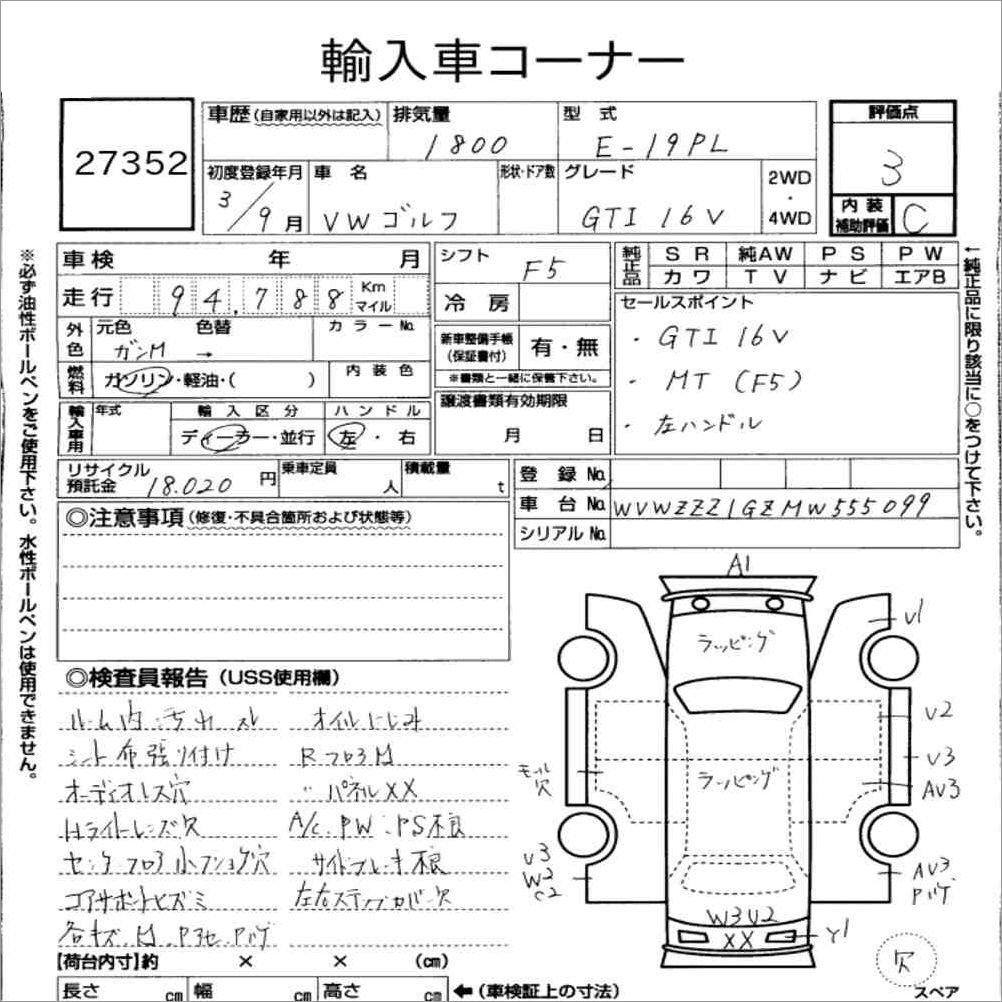 輸入車コーナー
27352
車歴 (自家用以外は記入)
排気量
1800
型式
E-19PL
評価点
3
初度登録年月
3/9月
車名
VW ゴルフ
形状・ドア数
グレード
GTI 16V
2WD
・
4WD
内装
補助評価
C
車検 年 月
シフト
F5
純正品
SR 純AW PS PW
カワ TV ナビ エアB
走行 94,788 Km マイル
冷房
セールスポイント
・GTI 16V
・MT (F5)
・左ハンドル
外色
元色 色替 カラーNo.
ガンM →
新車整備手帳
(保証書付)
有・無
※書類と一緒に保管下さい。
燃料
ガソリン・軽油・( )
内装色
譲渡書類有効期限
月 日
輸入車用
年式
輸入区分
ハンドル
ディーラー・並行
左・右
リサイクル
預託金
18.020 円
乗車定員
人
積載量
t
登録No.
車台No.
WVWZZZ1GZMW555099
シリアルNo.
◎注意事項 (修復・不具合箇所および状態等)
◎検査員報告 (USS使用欄)
ルーム内汚れスレ オイルにじみ
シート布張り付け RフロアM
オーディオレス穴 〃 パネルXX
Hライトレンズ欠 A/C.PW.PS不良
サイドブレーキ不良
コアサポートヒズミ 左右ステップカバー欠
【荷台内寸】約 × × (cm)
長さ cm 幅 cm 高さ cm
←(車検証上の寸法)
A1
ラッピング
V1
V2
V3
AV3
ラッピング
モール
穴
V3
W2
C2
AV3
W3V2
XX
Y1
欠
スペア
※必ず油性ボールペンをご使用下さい。水性ボールペンは使用できません。
←純正品に限り該当に○をつけて下さい。